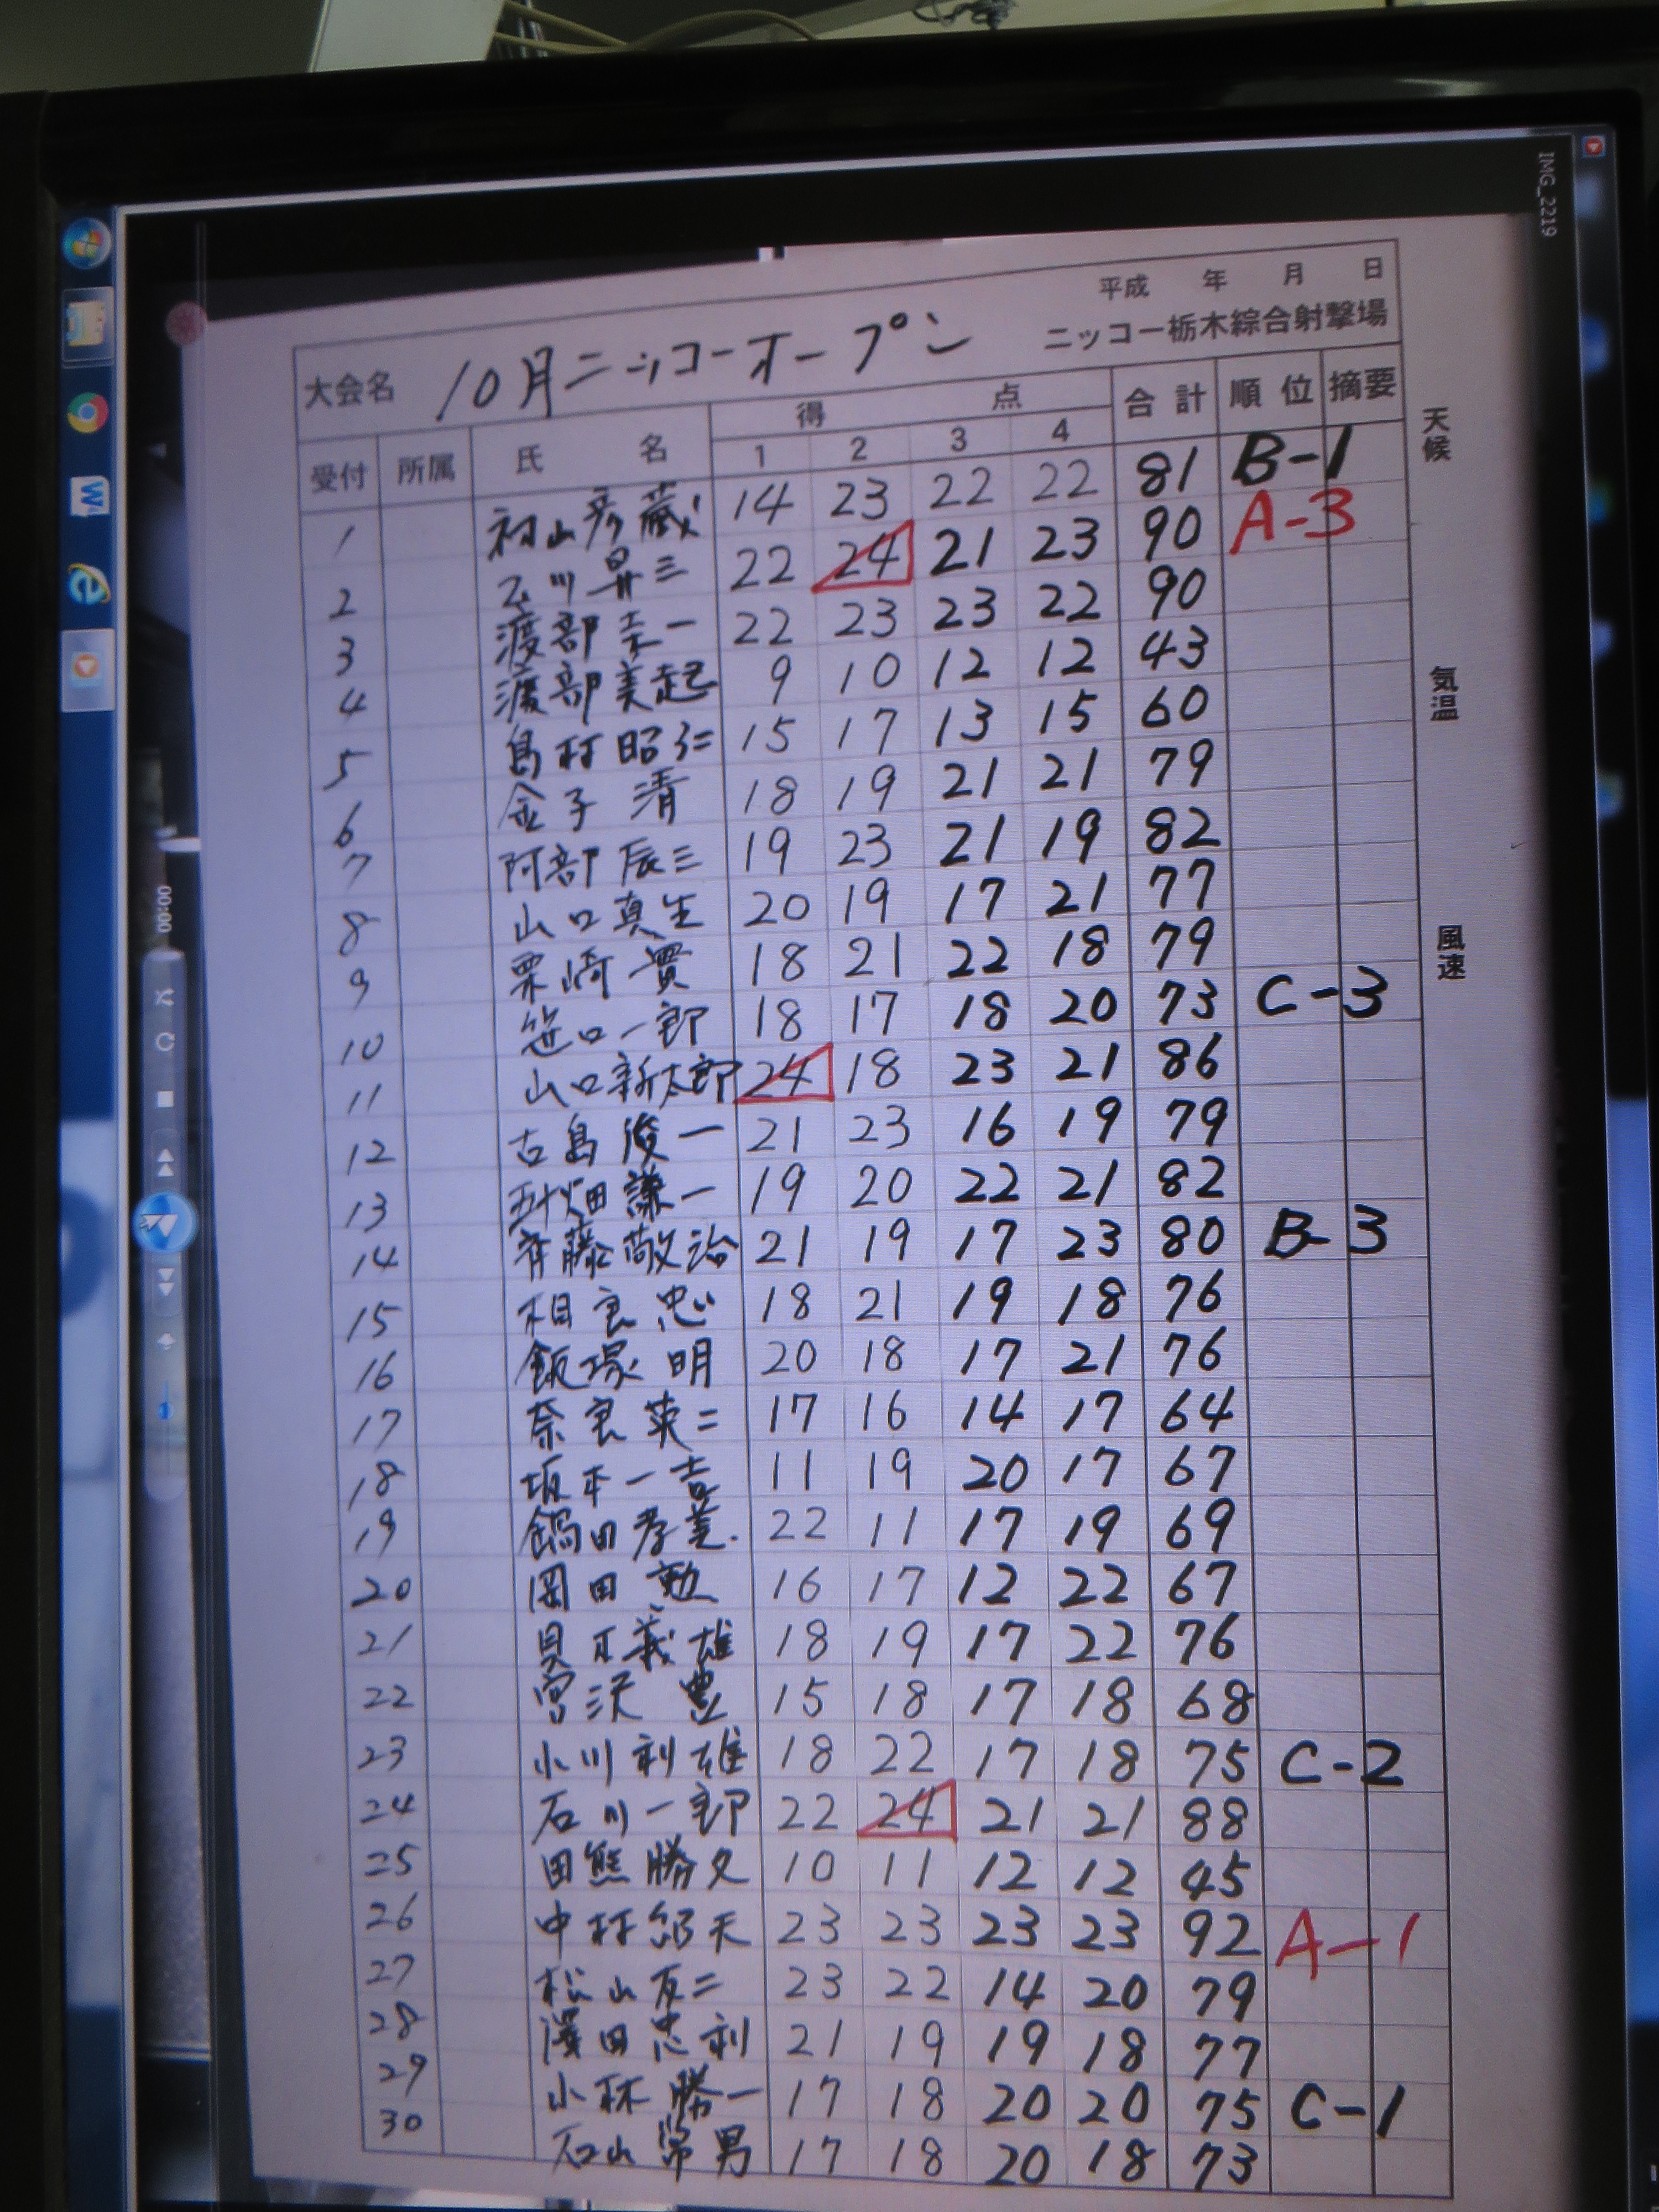 IMG_2219
平成 年 月 日
ニッコー栃木綜合射撃場
大会名 10月ニッコーオープン
天候
気温
風速
受付 所属 氏名 得点 合計 順位 摘要
1 2 3 4
1 初山彦蔵 14 23 22 22 81 B-1
2 川昇三 22 24 21 23 90 A-3
3 渡部幸一 22 23 23 22 90
4 渡部美起 9 10 12 12 43
5 島村昭仁 15 17 13 15 60
6 金子清 18 19 21 21 79
7 阿部辰三 19 23 21 19 82
8 山口真生 20 19 17 21 77
9 栗崎實 18 21 22 18 79
10 笹口一郎 18 17 18 20 73 C-3
11 山口新太郎 24 18 23 21 86
12 古島俊一 21 23 16 19 79
13 五十畑謙一 19 20 22 21 82
14 斉藤敬治 21 19 17 23 80 B-3
15 相良忠 18 21 19 18 76
16 飯塚明 20 18 17 21 76
17 奈良英二 17 16 14 17 64
18 坂本一吉 11 19 20 17 67
19 鍋田孝美 22 11 17 19 69
20 岡田勲 16 17 12 22 67
21 貝正義雄 18 19 17 22 76
22 宮沢豊 15 18 17 18 68
23 小川利雄 18 22 17 18 75 C-2
24 石川一郎 22 24 21 21 88
25 田熊勝久 10 11 12 12 45
26 中村 23 23 23 23 92 A-1
27 松山友二 23 22 14 20 79
28 澤田忠利 21 19 19 18 77
29 小林勝一 17 18 20 20 75 C-1
30 石山常男 17 18 20 18 73
00:00